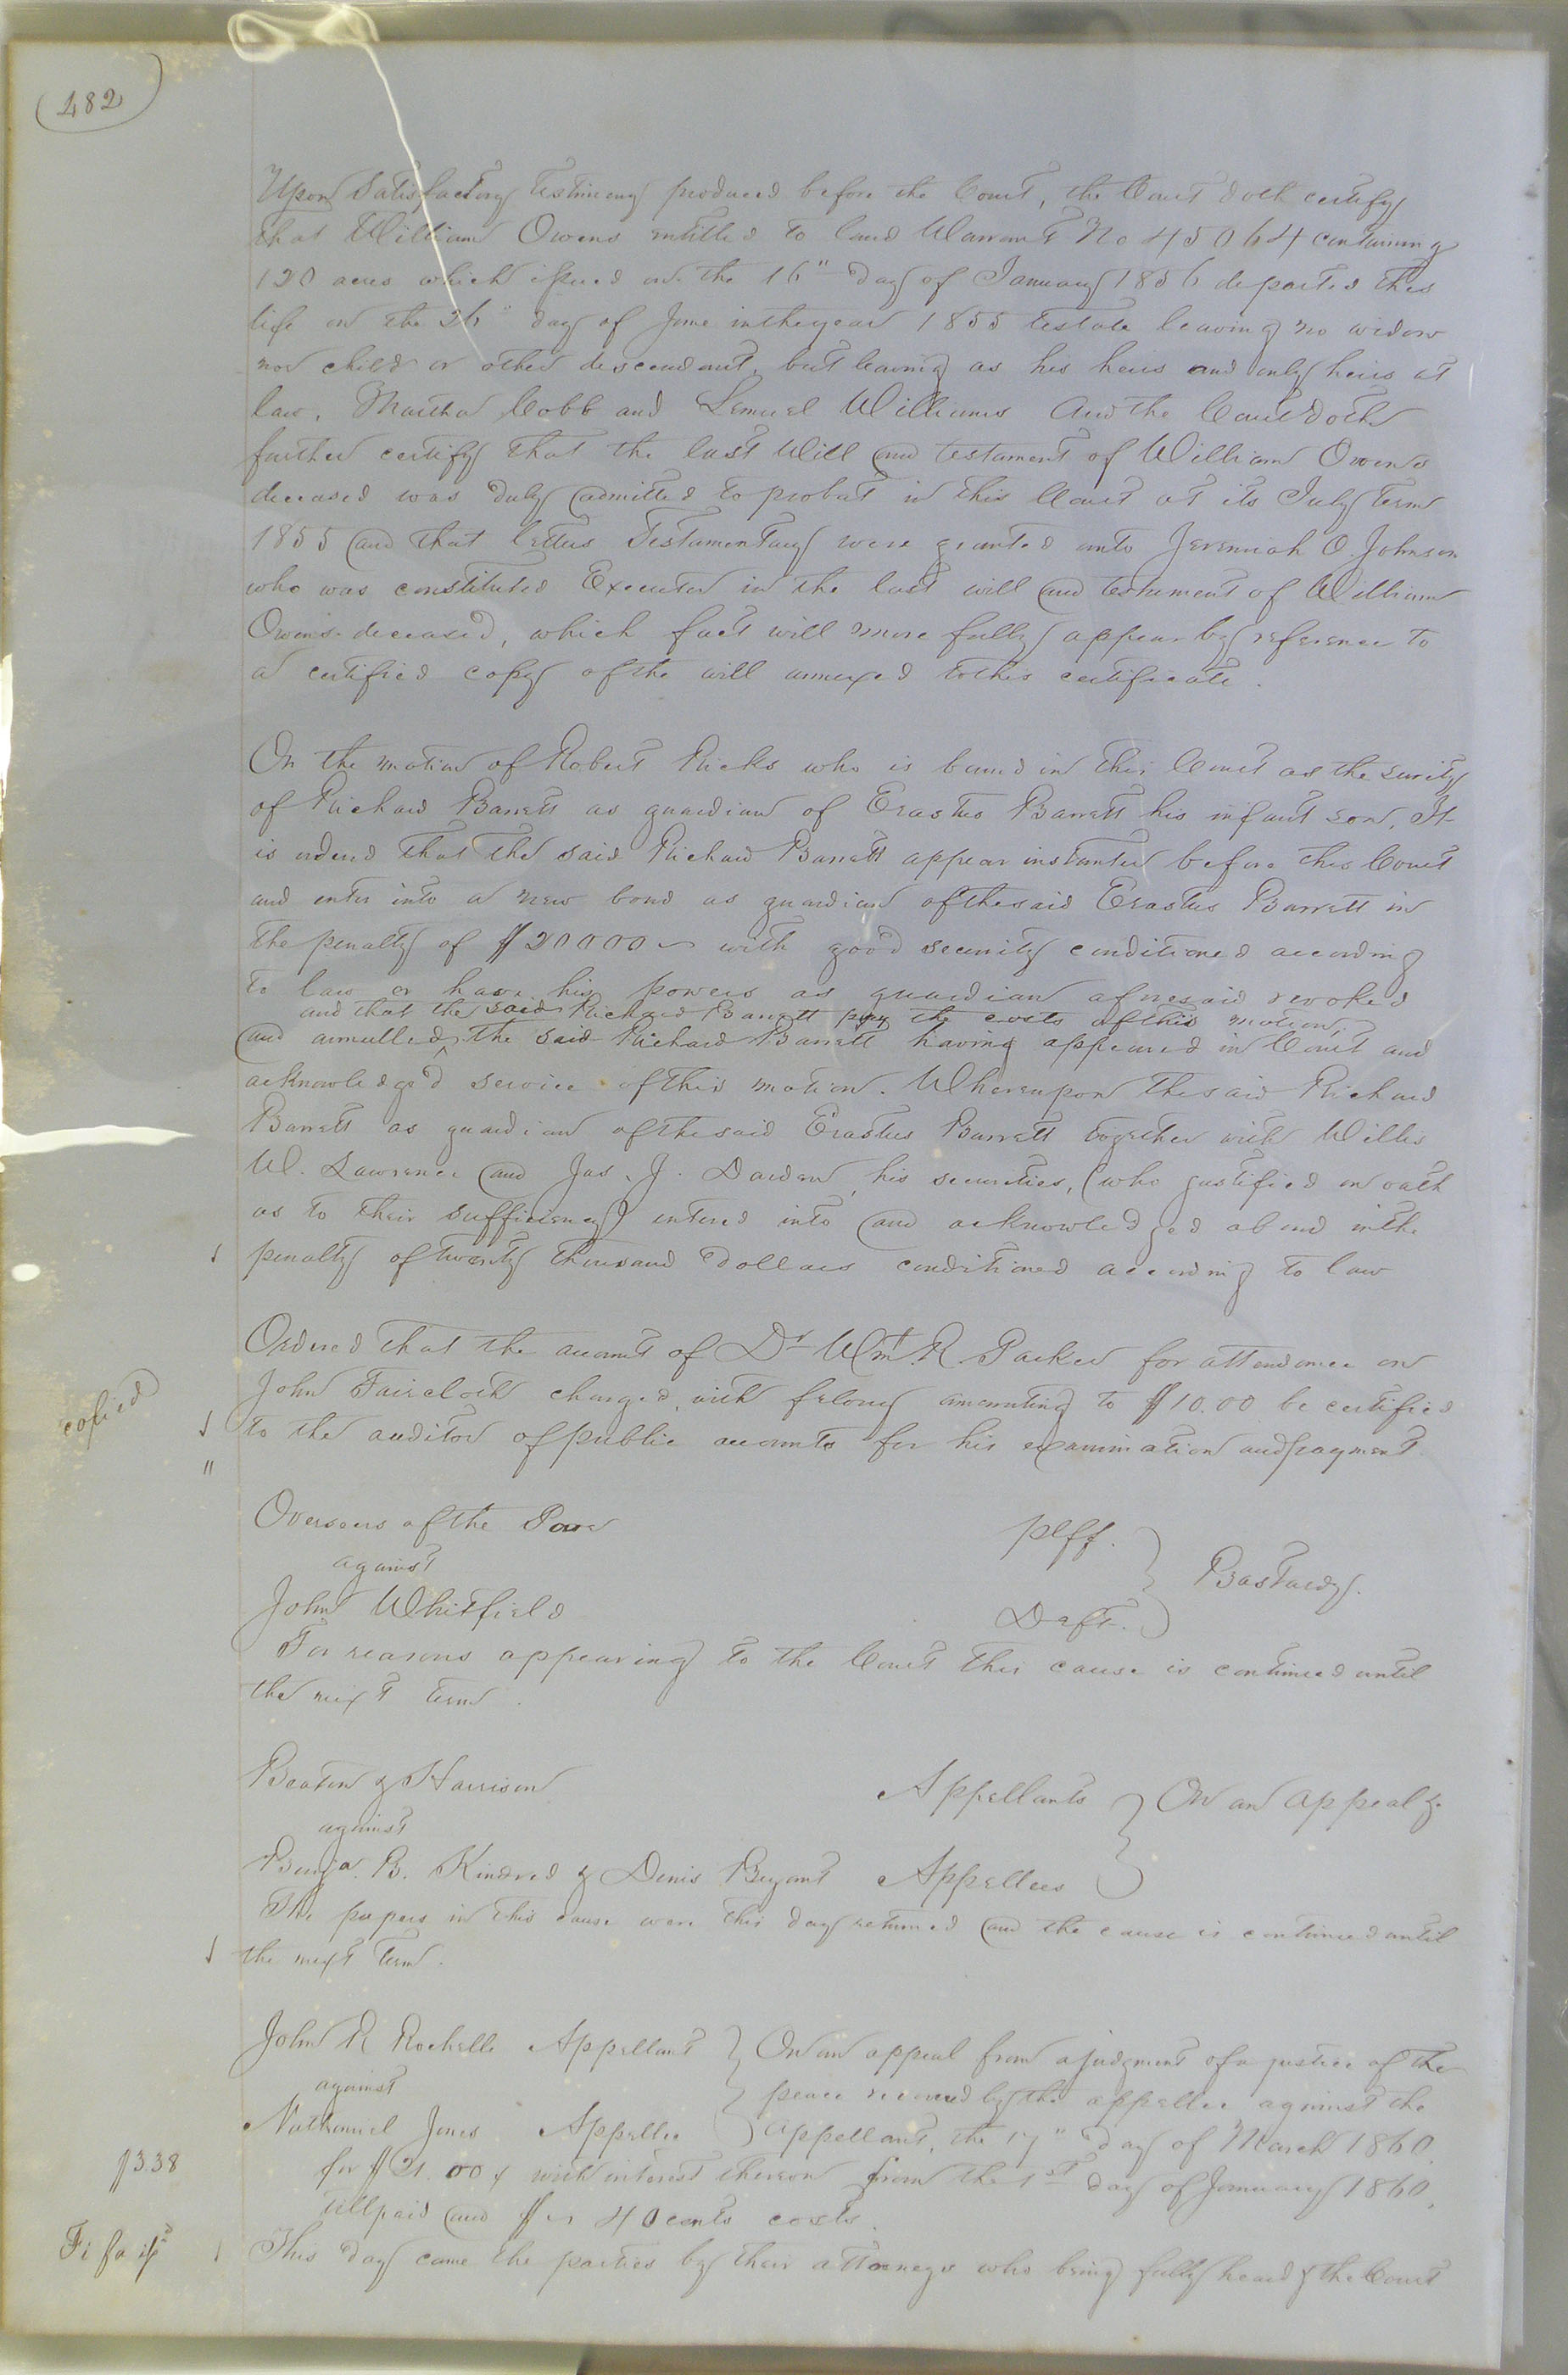 482
Upon Satisfactory testimony produced before the Court, the Court doth certify
that William Owens entitled to land Warrant No 45064 containing
120 acres which issued on the 16" day of January 1856 departed this
life on the 26" day of June in the year 1855 testate leaving no widow
nor child or other descendant, but leaving as his heirs and only heirs at
law, Martha Cobb and Lemuel Williams And the Court doth
further certify that the last Will and testament of William Owens
deceased was duly admitted to probat in this Court at its July term
1855 and that letters Testamentary were granted unto Jeremiah O. Johnson
who was constituted Executor in the last will and testament of William
Owens deceased, which fact will more fully appear by reference to
a certified copy of the will annexed to this certificate.
On the motion of Robert Ricks who is bound in this Court as the surity
of Richard Barrett as guardian of Erastus Barrett his infant son, It
is ordered that the said Richard Barrett appear instanter before this Court
and enter into a new bond as guardian of the said Erastus Barrett in
the penalty of $20000 with good security conditioned according
to law or have his powers as guardian aforesaid revoked
and that the said Richard Barrett pay the costs of this motion,
and annulled, the said Richard Barrett having appeared in Court and
acknowledge'd service of this motion. Whereupon the said Richard
Barrett as guardian of the said Erastus Barrett together with Willis
W. Lawrence and Jas. J. Darden, his securities, (who justified on oath
as to their sufficiency) entered into and acknowledged a bond in the
penalty of twenty thousand dollars conditioned according to law
Ordered that the account of Dr Wm. R. Parker for attendance on
John Faircloth charged with felony amounting to $10.00 be certified
copied
to the auditor of public accounts for his examination and payment.
"
Overseers of the Poor plff.
against
Bastardy.
John Whitfield Deft.
For reasons appearing to the Court this cause is continued until
the next term.
Beaton & Harrison Appellants On an appeal &.
against
Benja. B. Kindred & Denis Bryant Appellees
The papers in this cause were this day returned and the cause is continued until
the next term.
John R Rochelle Appellant On an appeal from a judgment of a justice of the
against peace recovered by the appellee against the
Nathaniel Jones Appellee appellant, the 17" day of March 1860.
$3.38
for $21.00 with interest thereon from the 1st day of January 1860,
till paid and $ 40 cents costs.
Fi fa
This day came the parties by their attorneys who being fully heard & the Court